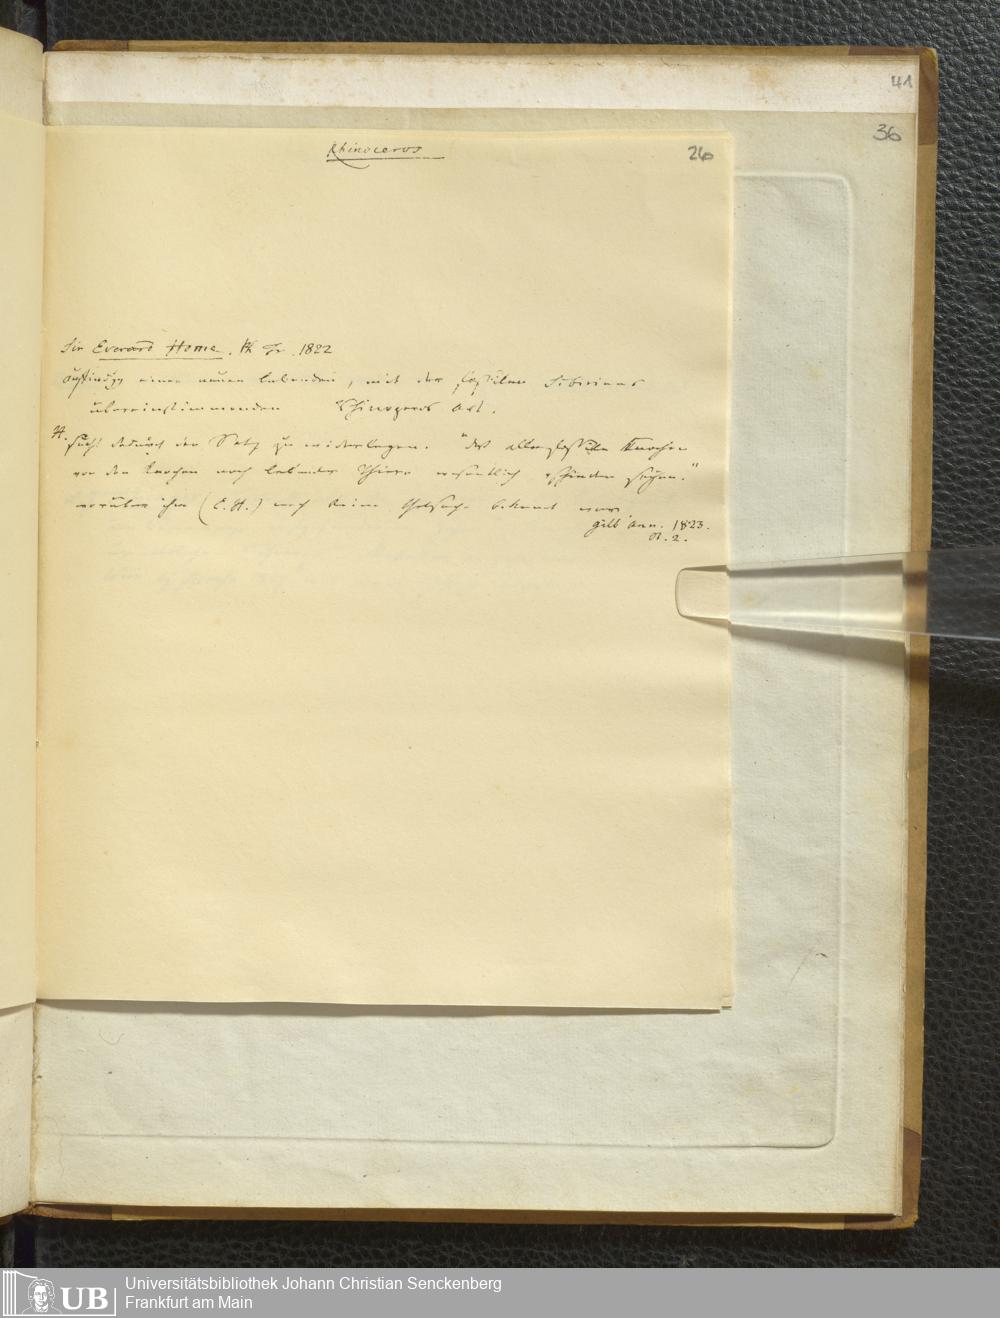 41
36
Rhinoceros
26
Sir Everard Home. Ph Tr. 1822
einer neuen lebenden, mit der fossilen Sibiriens
übereinstimmenden Rhinozeros Art.
H. sucht dadurch den Satz zu widerlegen. "daß alle fossile Knochen
von den Knochen noch lebender Thiere wesentlich verschieden seyen."
worüber ihm (E. H.) noch keine Thatsache bekannt war.
Gilb Ann. 1823.
St. 2.
UB
Universitätsbibliothek Johann Christian Senckenberg
Frankfurt am Main